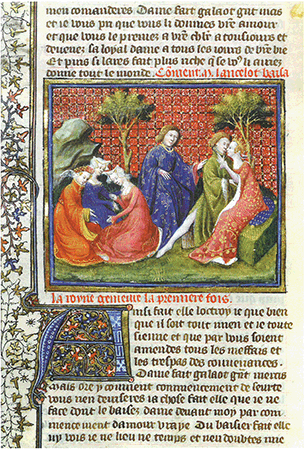 men comanderes Dame fait galaot grãt mcis
et ie vous pri que vous li donnes vr̃e amour
et que vous le prenes a vr̃e chlr a tousiours et
deuene; sa loyal dame a tous les iours de vr̃e vie
Et puis si lares fait plus riche q̃ se vo9 li auies
donne tout le monde. Coment lancelot baisa
la royne genieure la premiere fois.
Ainsi fait elle loctroy ie que bien
que il soit tout mien et ie toute
sienne et que par vous soient
amendes tous les meffais et
les trespas des conuenances.
Dame fait galaot grãt mercis
mais ore y conuient commencement de seurte
vous nen deuiseres ia chose fait elle que ie ne
face dont le baises dame deuant moy par com
mencement damour vraye Du baisier fait elle
ie ne lieu ne temps et neu doubtes mie